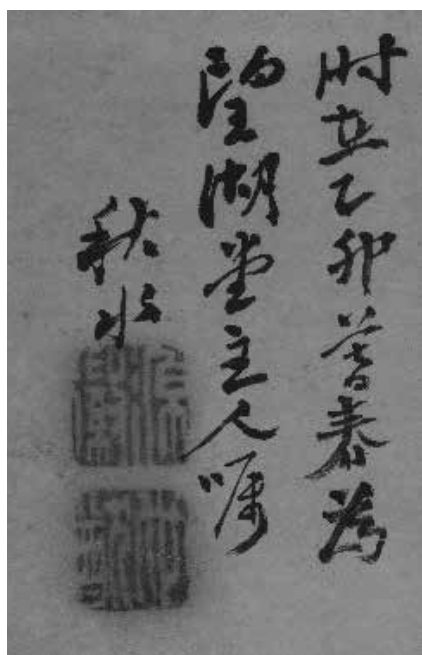 时在乙卯暮春為
望湖堂主人嘱
秋水